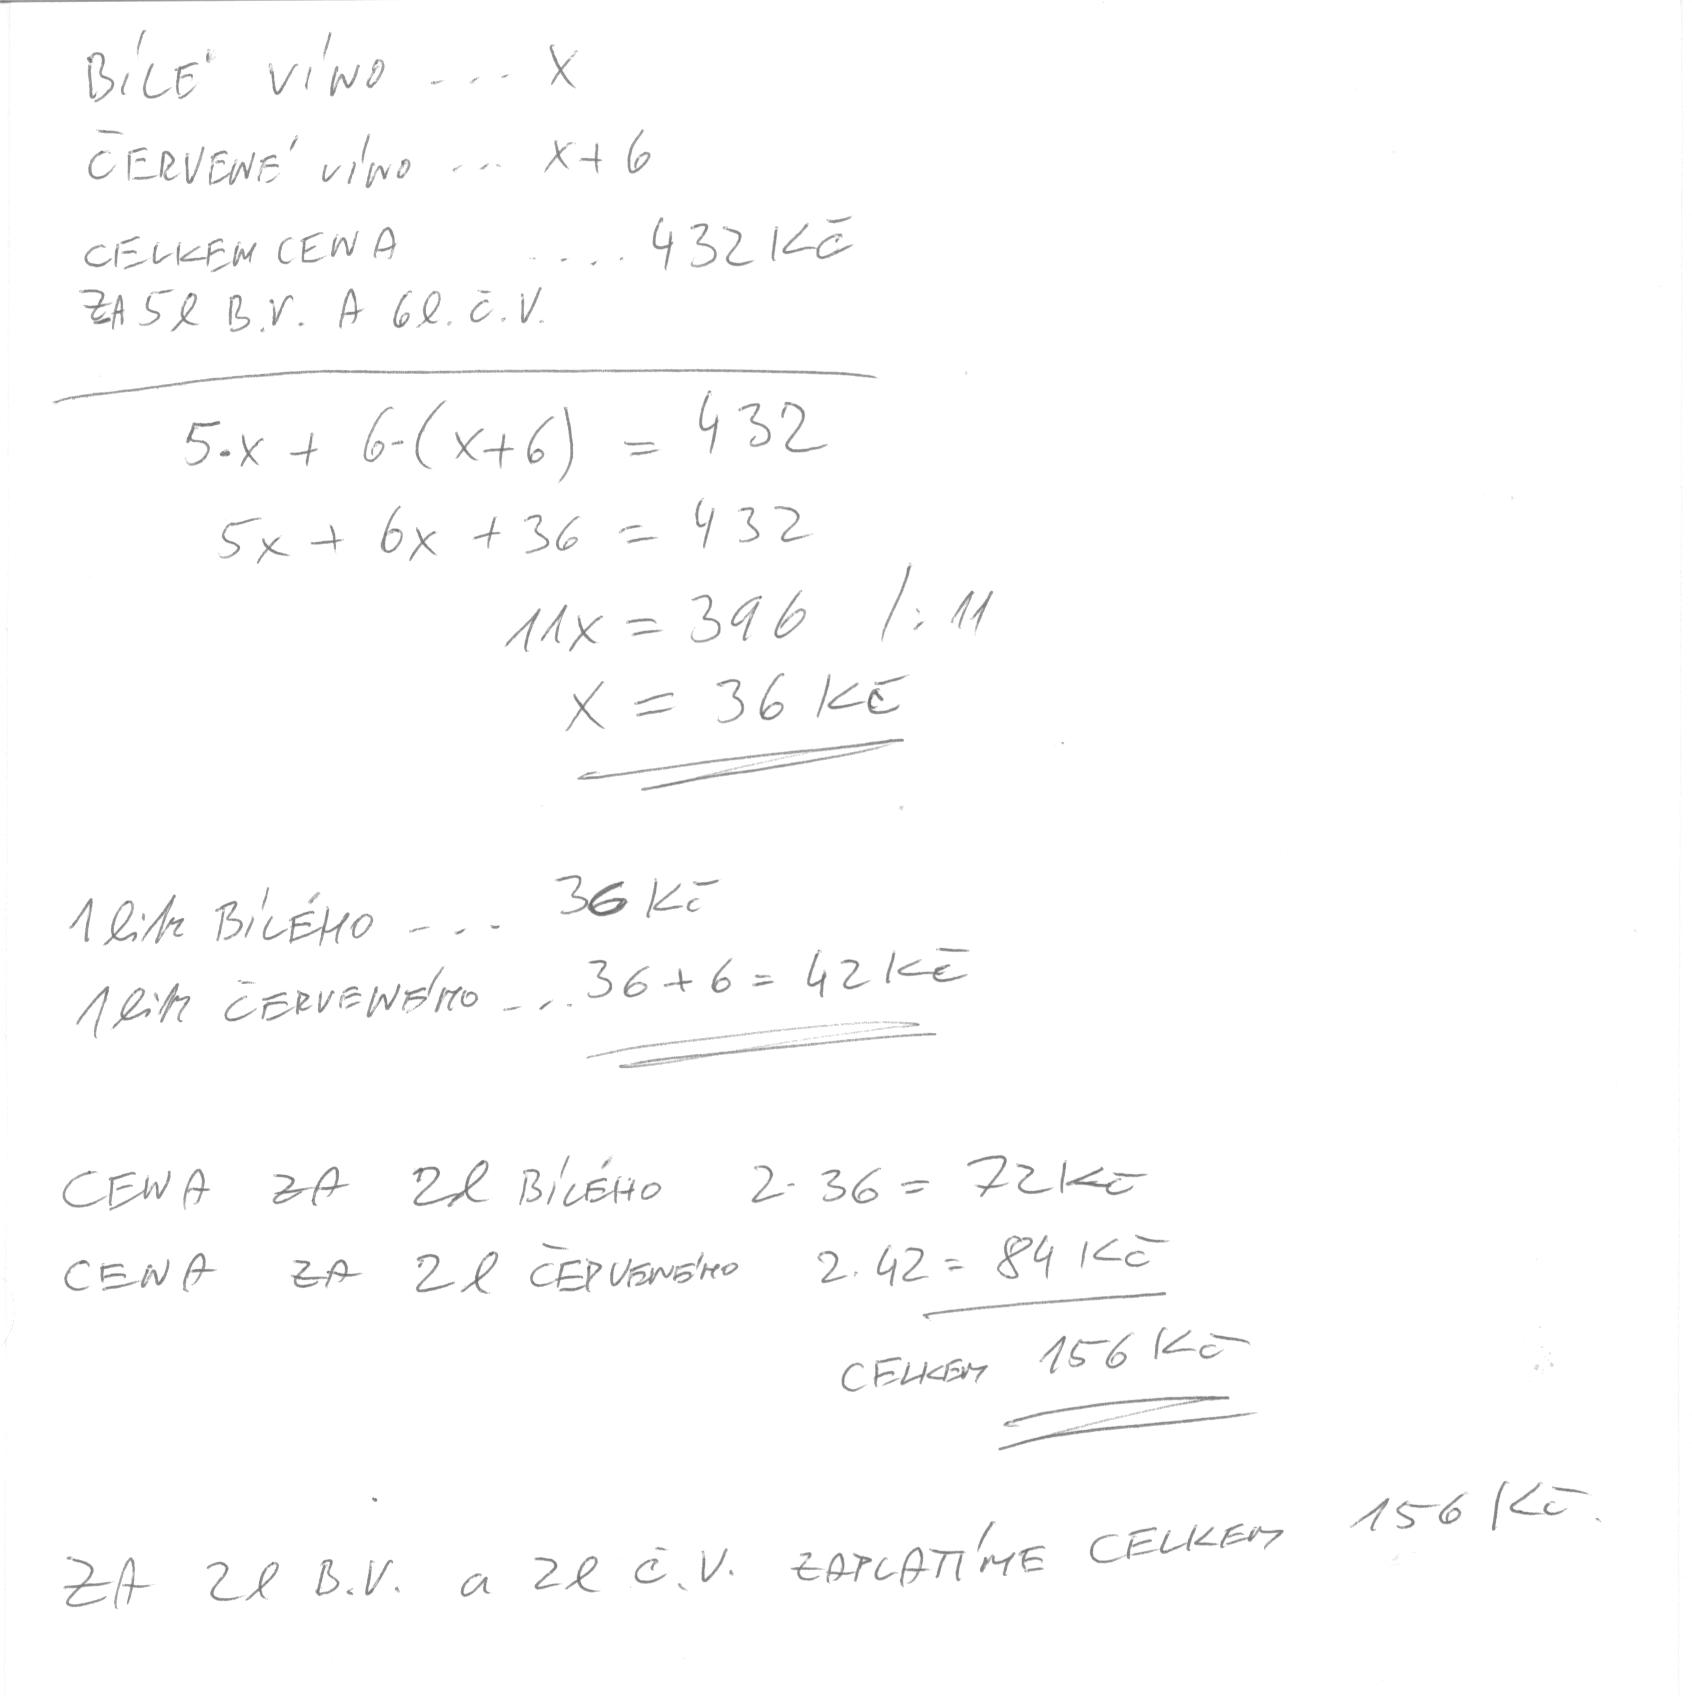 BÍLÉ VÍNO .... X
ČERVENÉ VÍNO ... X+6
CELKEM CENA .... 432 Kč
ZA 5l B.V. A 6l. č.V.
5·x + 6·(x+6) = 432
5x + 6x + 36 = 432
11x = 396 /:11
X = 36 Kč
1 litr BÍLÉHO .... 36 Kč
1 litr ČERVENÉHO .... 36+6 = 42 Kč
CENA ZA 2l BÍLÉHO 2·36 = 72 Kč
CENA ZA 2l ČERVENÉHO 2.42 = 84 Kč
CELKEM 156 Kč
ZA 2l B.V. a 2l č.V. ZAPLATÍME CELKEM 156 Kč.